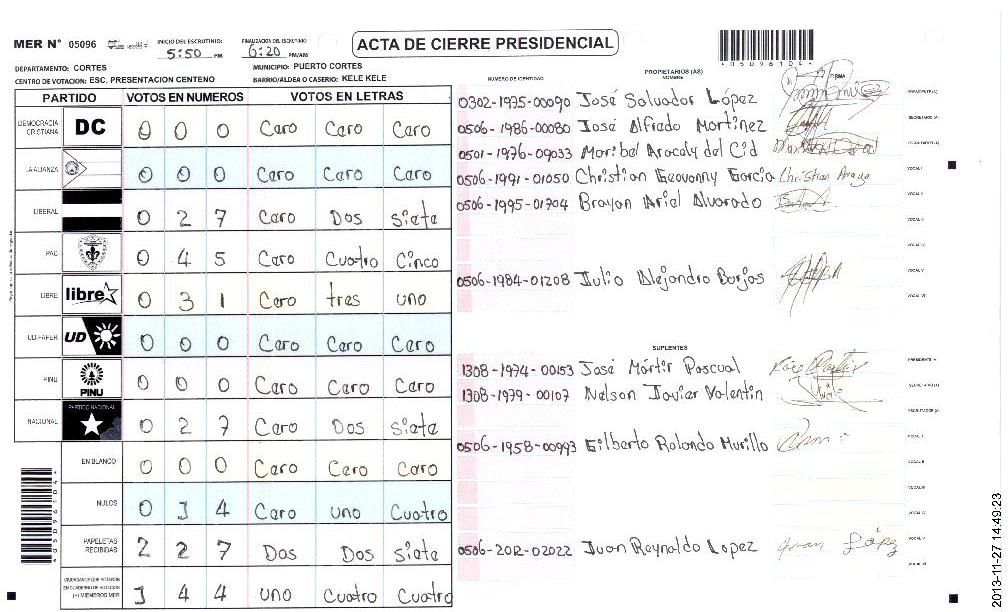 MER N° 05096 INICIO DEL ESCRUTINIO: 5:50 PM FINALIZACION DEL ESCRUTINIO: 6:20 PM/AM
ACTA DE CIERRE PRESIDENCIAL
4050961044
DEPARTAMENTO: CORTES MUNICIPIO: PUERTO CORTES
CENTRO DE VOTACION: ESC. PRESENTACION CENTENO BARRIO/ALDEA O CASERIO: KELE KELE
PARTIDO VOTOS EN NUMEROS VOTOS EN LETRAS
DEMOCRACIA CRISTIANA DC 0 0 0 Caro Caro Caro
LA ALIANZA 0 0 0 Caro Caro Caro
LIBERAL 0 2 7 Caro Dos siete
PAC 0 4 5 Caro Cuatro Cinco
LIBRE libre 0 3 1 Caro tres uno
UD-FAPER UD 0 0 0 Caro Caro Caro
PINU PINU 0 0 0 Caro Caro Caro
NACIONAL PARTIDO NACIONAL 0 2 7 Caro Dos siete
EN BLANCO 0 0 0 Caro Caro Caro
NULOS 0 1 4 Caro uno Cuatro
PAPELETAS RECIBIDAS 2 2 7 Dos Dos siete
CIUDADANOS QUE VOTARON EN CUADERNO DE VOTACION (+) MIEMBROS MER 1 4 4 uno Cuatro Cuatro
NUMERO DE IDENTIDAD PROPIETARIOS (AS) NOMBRE FIRMA
0302-1975-00090 José Salvador López PRESIDENTE (A)
0506-1986-00080 José Alfredo Martinez SECRETARIO (A)
0501-1976-09033 Maribel Aracely del Cid ESCRUTADOR (A)
0506-1991-01050 Christian Geovanny Garcia Christian VOCAL I
0506-1995-01704 Brayan Ariel Alvarado VOCAL II
VOCAL III
VOCAL IV
0506-1984-01208 Julio Alejandro Borjas VOCAL V
VOCAL VI
SUPLENTES
1308-1974-00153 José Mártir Pascual PRESIDENTE (A)
1308-1979-00107 Nelson Javier Valentin SECRETARIO (A)
ESCRUTADOR (A)
0506-1958-00993 Gilberto Rolando Murillo VOCAL I
VOCAL II
VOCAL III
VOCAL IV
0506-2012-02022 Juan Reynaldo Lopez Juan López VOCAL V
VOCAL VI
2013-11-27 14:49:23